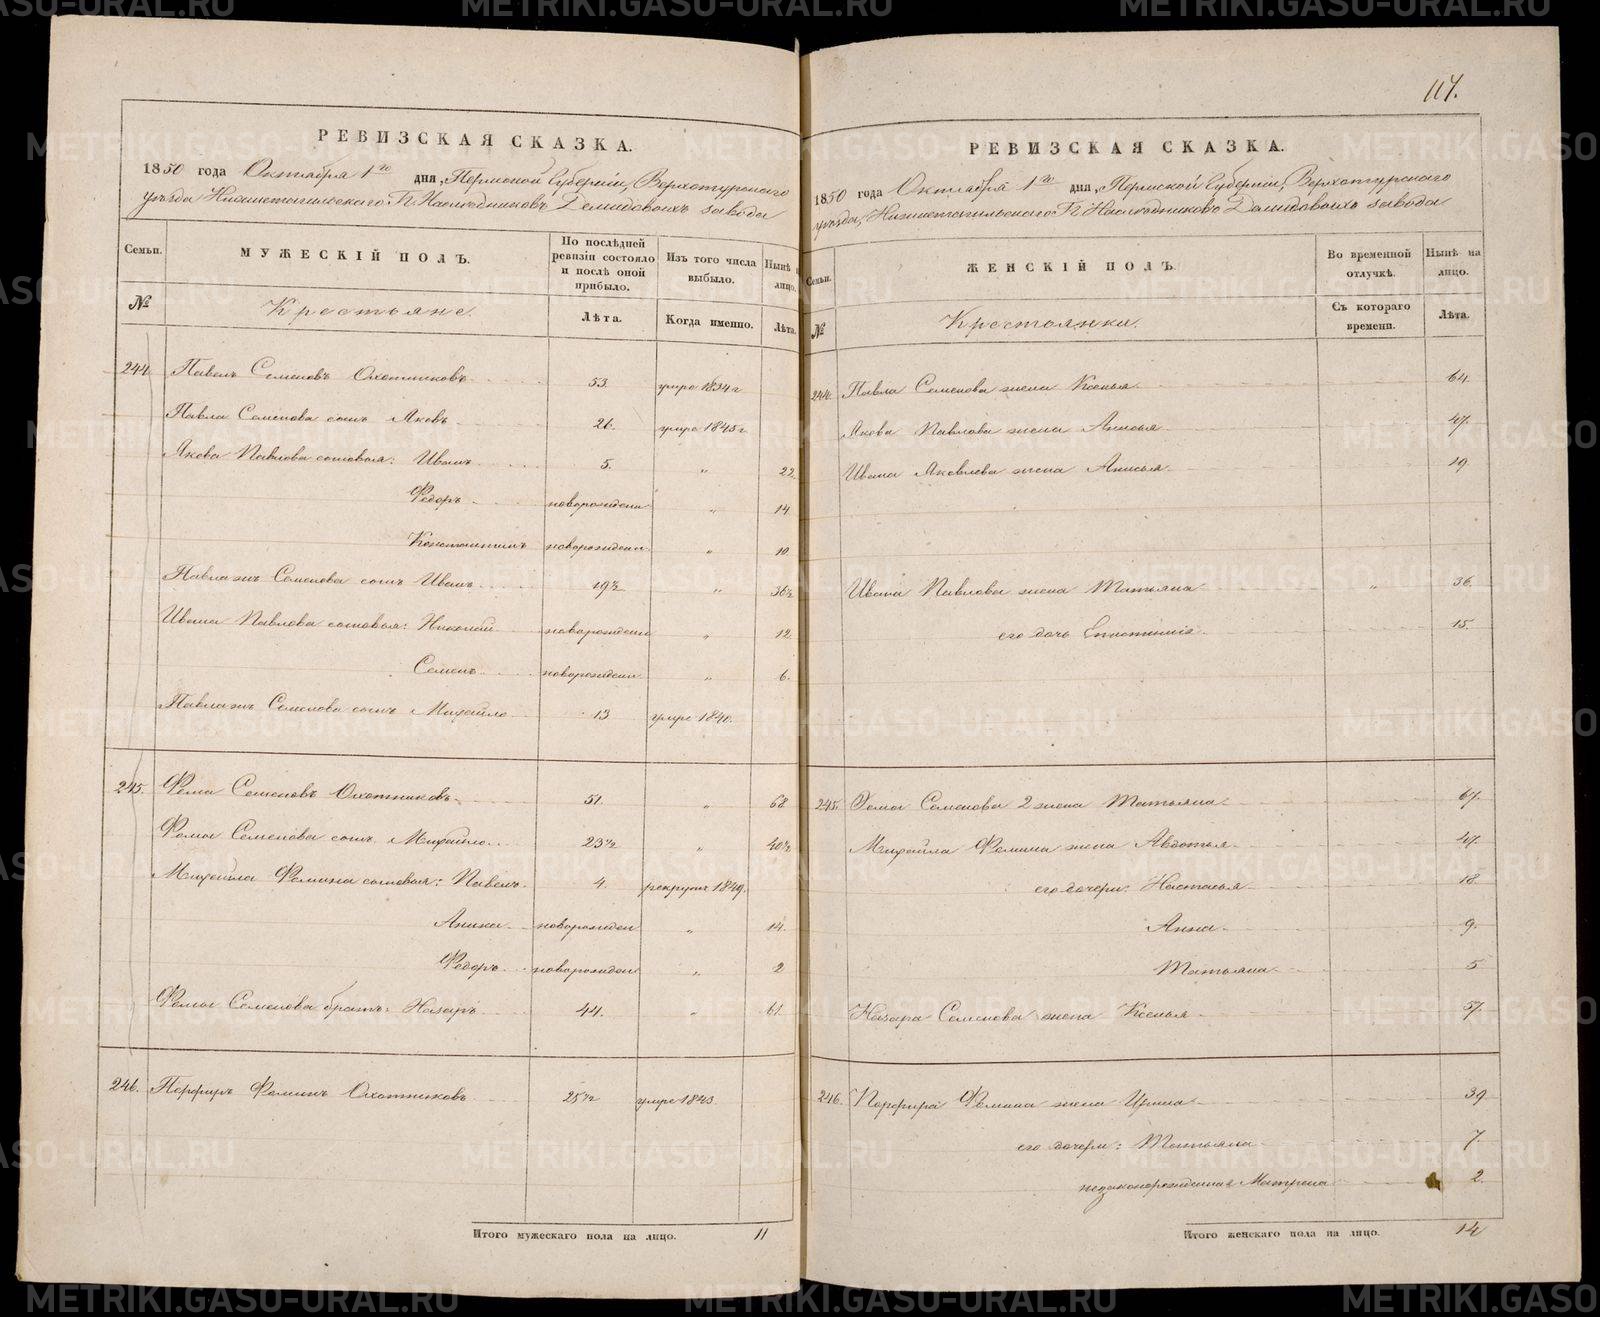 117.
РЕВИЗСКАЯ СКАЗКА.
1850 года Октября 1го дня, Пермской Губернии, Верхотурского
уезда Нижнетагильского Гг. Наследниковъ Демидовыхъ завода
Семьи. МУЖЕСКІЙ ПОЛЪ. По послѣдней ревизіи состояло и послѣ оной прибыло. Изъ того числа выбыло. Нынѣ на лицо.
№ Крестьяне. Лѣта. Когда именно. Лѣта.
244 Павелъ Семеновъ Охотниковъ 53. умре 1834 г
Павла Семенова сынъ Яковъ 26. умре 1845 г
Якова Павлова сыновья: Иванъ 5. " 22.
Федоръ новорожденн " 14
Константинъ новорожден " 10
Павла жъ Семенова сынъ Иванъ 19½ " 36½
Ивана Павлова сыновья: Николай новорожденн " 12
Семенъ новорожденн " 6.
Павла жъ Семенова сынъ Михайло 13 умре 1840.
245. Фома Семеновъ Охотниковъ 51. " 68
Фомы Семенова сынъ Михайло 23½ " 40½
Михайла Фомина сыновья: Павелъ 4. рекрутъ 1849.
Аника новорожден " 14.
Федоръ новорожден " 2
Фомы Семенова братъ: Назаръ 44. " 61.
246. Порфиръ Фоминъ Охотниковъ 25½ умре 1843
Итого мужескаго пола на лицо. 11
РЕВИЗСКАЯ СКАЗКА.
1850 года Октября 1го дня, Пермской Губерніи, Верхотурского
уезда, Нижнетагильского Гг Наследниковъ Демидовыхъ завода
Семьи. ЖЕНСКІЙ ПОЛЪ. Во временной отлучкѣ. Нынѣ на лицо.
№ Крестьянки. Съ котораго времени. Лѣта.
244. Павла Семенова жена Ксенья 64.
Якова Павлова жена Анисья 47.
Ивана Яковлева жена Анисья 19.
Ивана Павлова жена Татьяна " 36.
его дочь 15.
245. Фомы Семенова 2 жена Татьяна 67.
Михайла Фомина жена Авдотья 47.
его дочери: Настасья 18
Анна 9.
Татьяна 5
Назара Семенова жена Ксенья 57.
246. Порфира Фомина жена Ирина 39.
его дочери: Татьяна 7.
незаконорожденная Матрена 2.
Итого женскаго пола на лицо. 14
METRIKI.GASO-URAL.RU